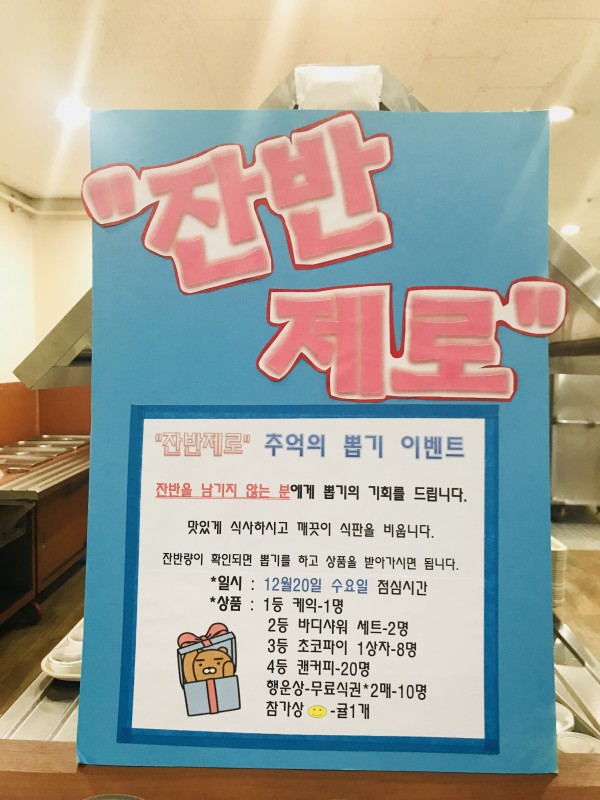 "잔반
제로"
"잔반제로" 추억의 뽑기 이벤트
잔반을 남기지 않는 분에게 뽑기의 기회를 드립니다.
맛있게 식사하시고 깨끗이 식판을 비웁니다.
잔반량이 확인되면 뽑기를 하고 상품을 받아가시면 됩니다.
*일시 : 12월20일 수요일 점심시간
*상품 : 1등 케익-1명
2등 바디샤워 세트-2명
3등 초코파이 1상자-8명
4등 캔커피-20명
행운상-무료식권*2매-10명
참가상 -귤1개